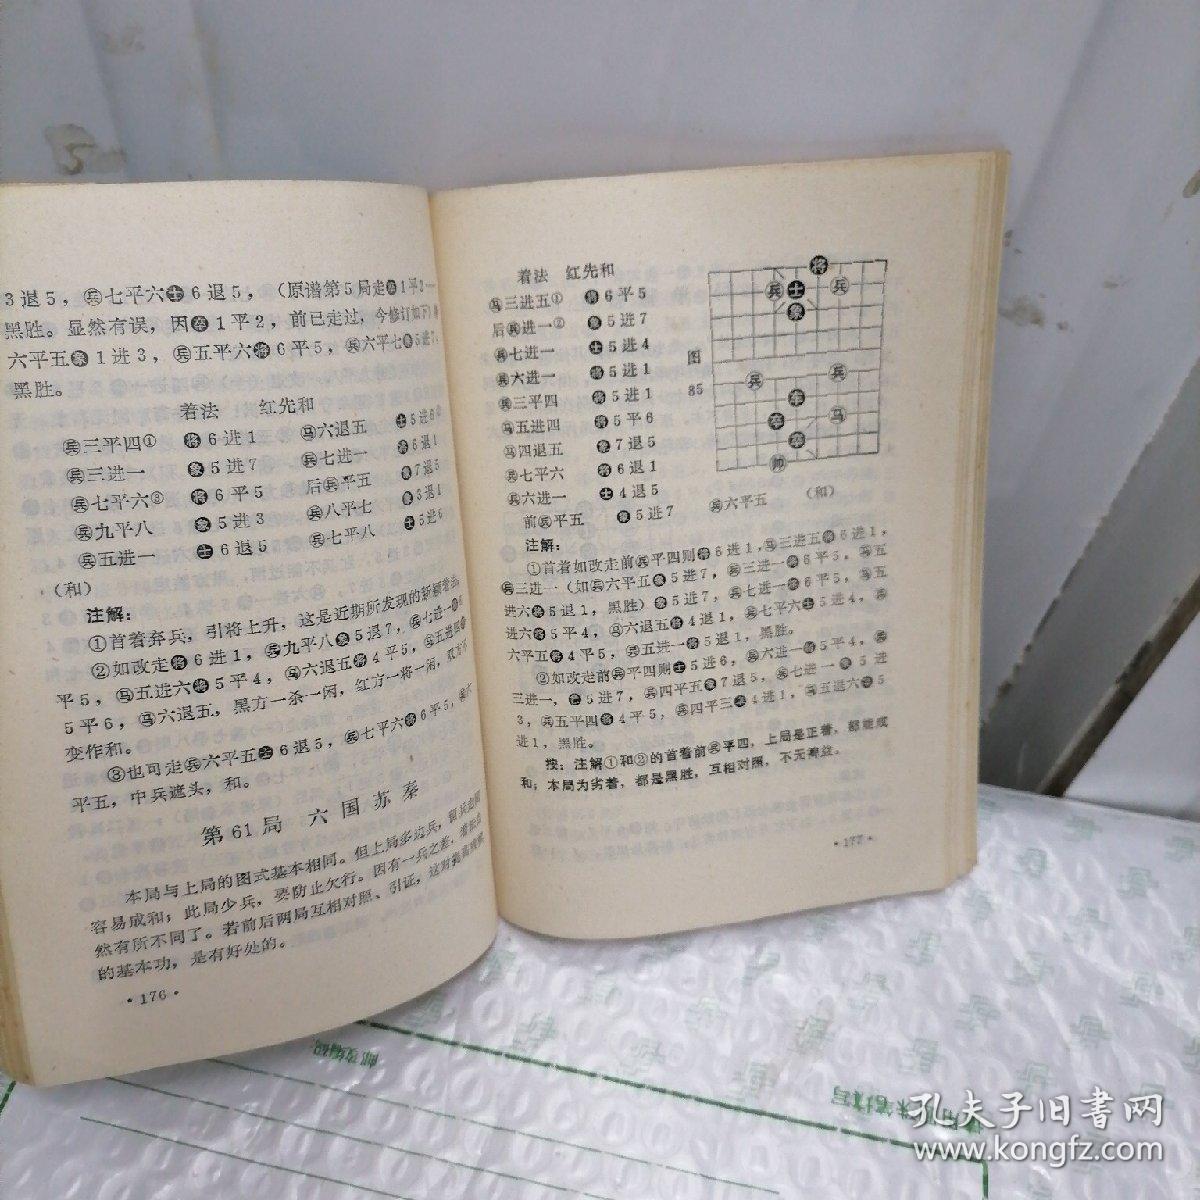 3退5，兵七平六士6退5，（原谱第5局走卒1平2—
黑胜。显然有误，因卒1平2，前已走过，今修订如下）
六平五象1进3，兵五平六将6平5，兵六平七象5进7，
黑胜。
着法 红先和
兵三平四① 将6进1 马六退五 士5进6②
兵三进一 象5进7 兵七进一 将6退1
兵七平六③ 将6平5 后兵平五 象7退5
兵九平八 象5进3 兵八平七 象3退1
兵五进一 士6退5 兵七平八 士5进6
（和）
注解：
①首着弃兵，引将上升，这是近期所发现的新颖着法。
②如改走将6进1，兵九平八象5退7，兵七进一
平5，马五进六将5平4，马六退五将4平5，马五进四
5平6，马六退五，黑方一杀一闲，红方一将一闲，双方不
变作和。
③也可走兵六平五士6退5，兵七平六将6平5，
平五，中兵遮头，和。
第61局 六国苏秦
本局与上局的图式基本相同。但上局多边兵，
容易成和；此局少兵，要防止欠行。因有一兵之差，
然有所不同了。若前后两局互相对照、引证，这对提高
的基本功，是有好处的。
·176·
着法 红先和
马三进五① 将6平5
后兵进一② 象5进7
兵七进一 士5进4
兵六进一 将5进1
兵三平四 将5进1
马五进四 将5平6
马四退五 象7退5
兵七平六 将6退1
兵六进一 士4退5
前兵平五 象5进7 兵六平五 （和）
图
85
将
兵 士 兵
象
兵 兵
车
卒 马
卒
帅
注解：
①首着如改走前兵平四则将6进1，马三进五将6进1，
兵三进一（如兵六平五象5进7，兵三进一将6平5，马五
进六将5退1，黑胜）象5进7，兵七进一将6平5，马五
进六将5平4，马六退五将4退1，兵七平六士5进4，兵
六平五将4平5，兵五进一将5退1，黑胜。
②如改走前兵平四则士5进6，兵六进一将5平4，兵
三进一，象5进7，兵四平五象7退5，兵七进一象5进
3，兵五平四将4平5，兵四平三将4进1，马五退六将5
进1，黑胜。
按：注解①和②的首着前兵平四，上局是正着，都能成
和；本局为劣着，都是黑胜，互相对照，不无裨益。
·177·
邮政编码：
孔夫子旧书网
www.kongfz.com